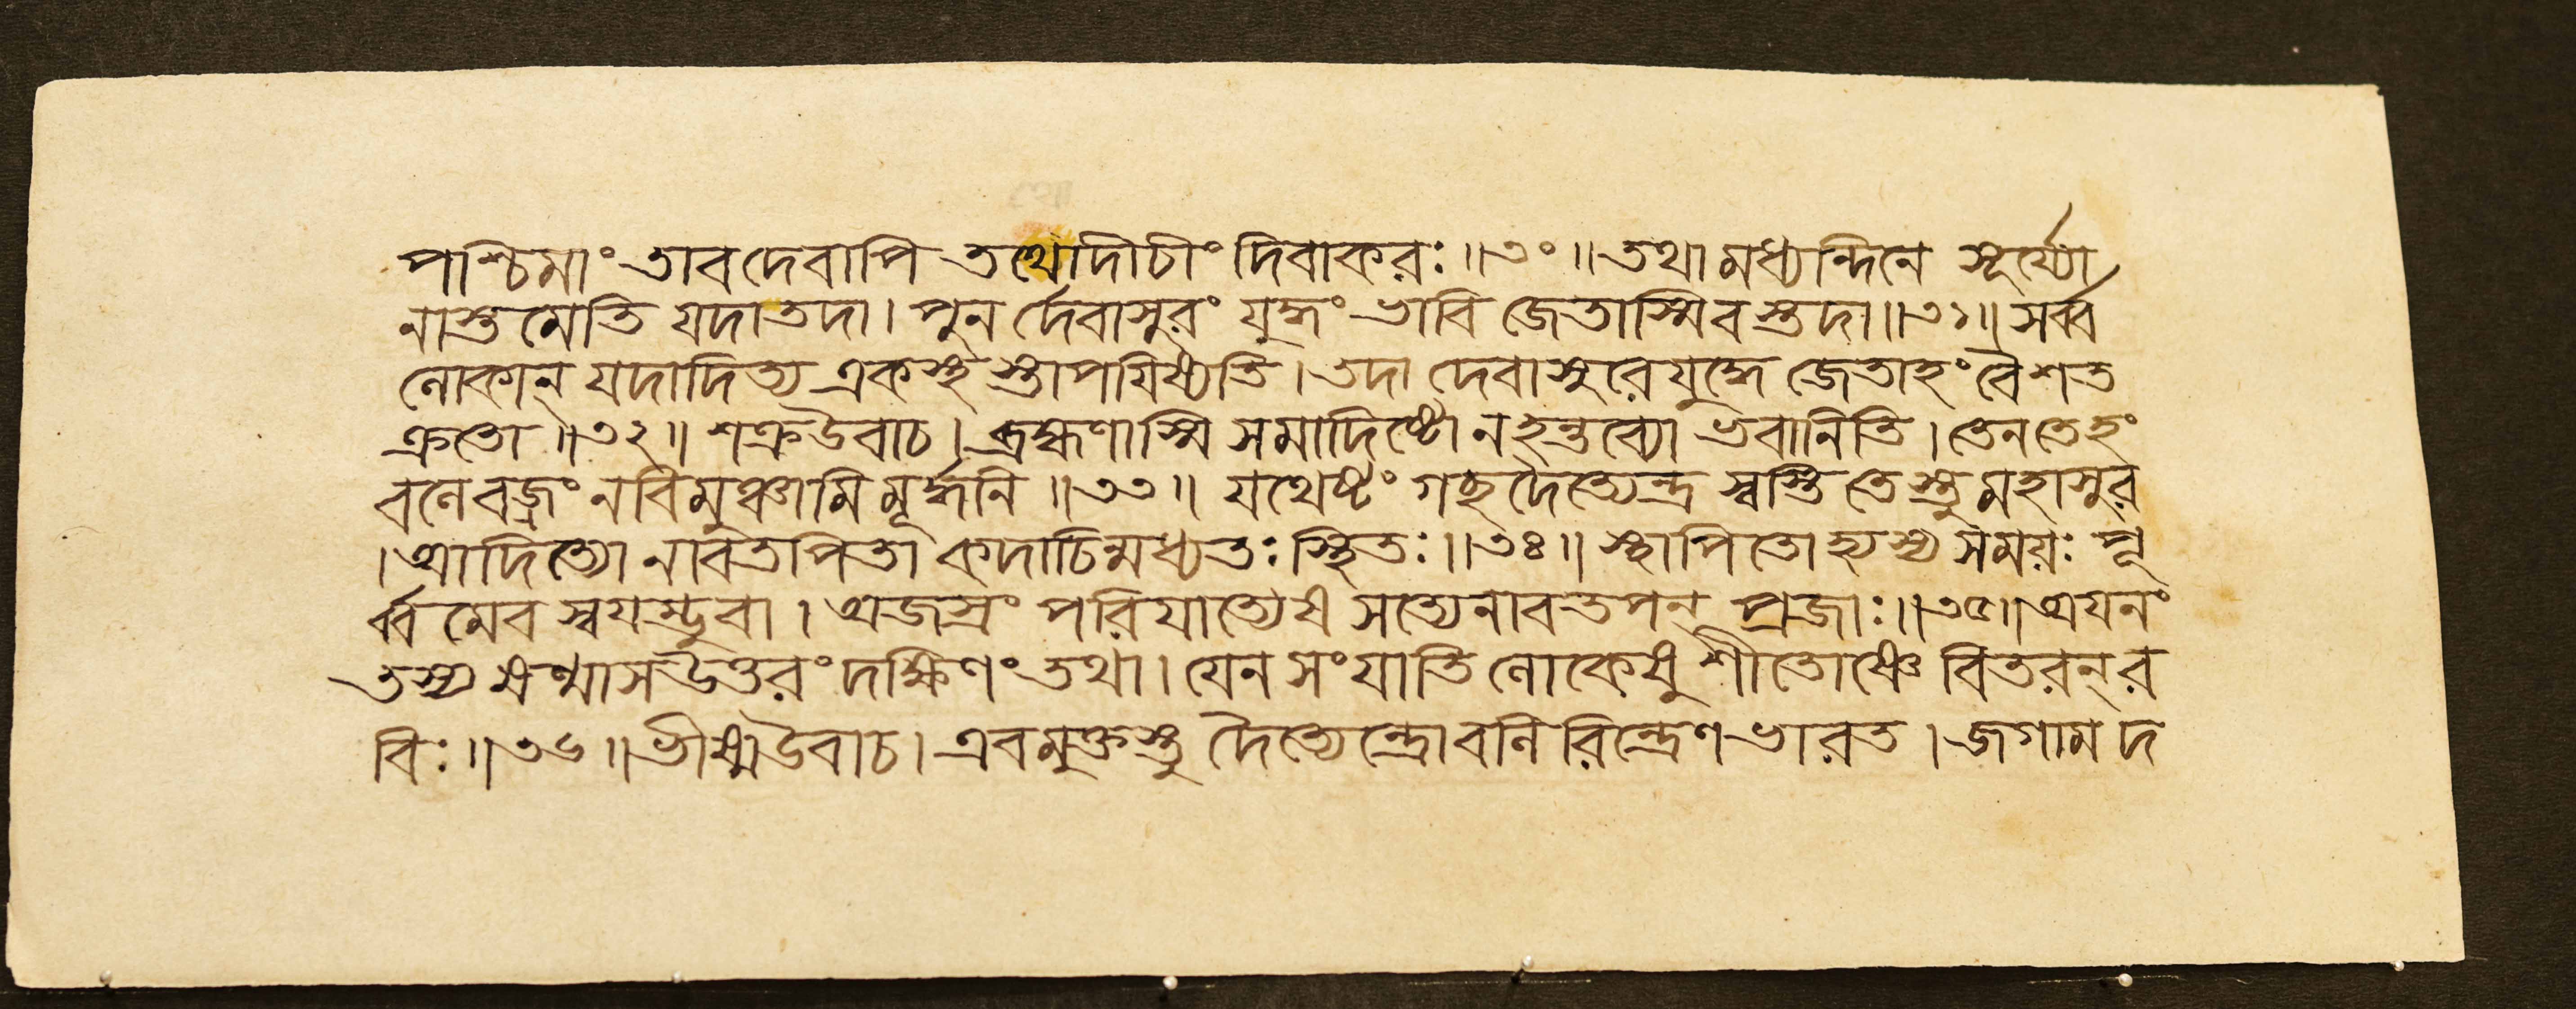 পশ্চিমাং তাবদেবাপি তথোদীচীং দিবাকরঃ॥৩০॥তথা মধ্যন্দিনে সূর্য্যো
নাস্তমেতি যদাতদা। পুনর্দেবাসুরং যুদ্ধং ভাবি জেতাস্মিবস্তদা॥৩১॥সর্ব্ব
লোকান্ যদাদিত্য একস্থ স্তাপয়িষ্যতি।তদা দেবাসুরে যুদ্ধে জেতাহং বৈ শত
ক্রতো॥৩২॥ শক্রউবাচ।ব্রহ্মণাস্মি সমাদিষ্টো ন হন্তব্যো ভবানিতি।তেন তেহং
বলে বজ্রং ন বিমুঞ্চামি মূর্দ্ধনি॥৩৩॥ যথেষ্টং গছ দৈত্যেন্দ্র স্বস্তি তেস্তু মহাসুর
।আদিত্যো নাবতপিতা কদাচিন্মধ্যতঃ স্থিতঃ॥৩৪॥ স্থাপিতো হ্যস্য সময়ঃ পূ
র্ব্বমেব স্বয়ম্ভুবা। অজস্রং পরিযাত্যেষ সত্যেনাবতপন্ প্রজাঃ॥৩৫॥অয়নং
তস্য ষণ্মাস উত্তরং দক্ষিণং তথা। যেন সংযাতি লোকেষু শীতোষ্ণে বিতরন্ র
বিঃ॥৩৬॥ভীষ্মউবাচ। এবমুক্তস্তু দৈত্যেন্দ্রো বলিরিন্দ্রেণ ভারত। জগাম দ